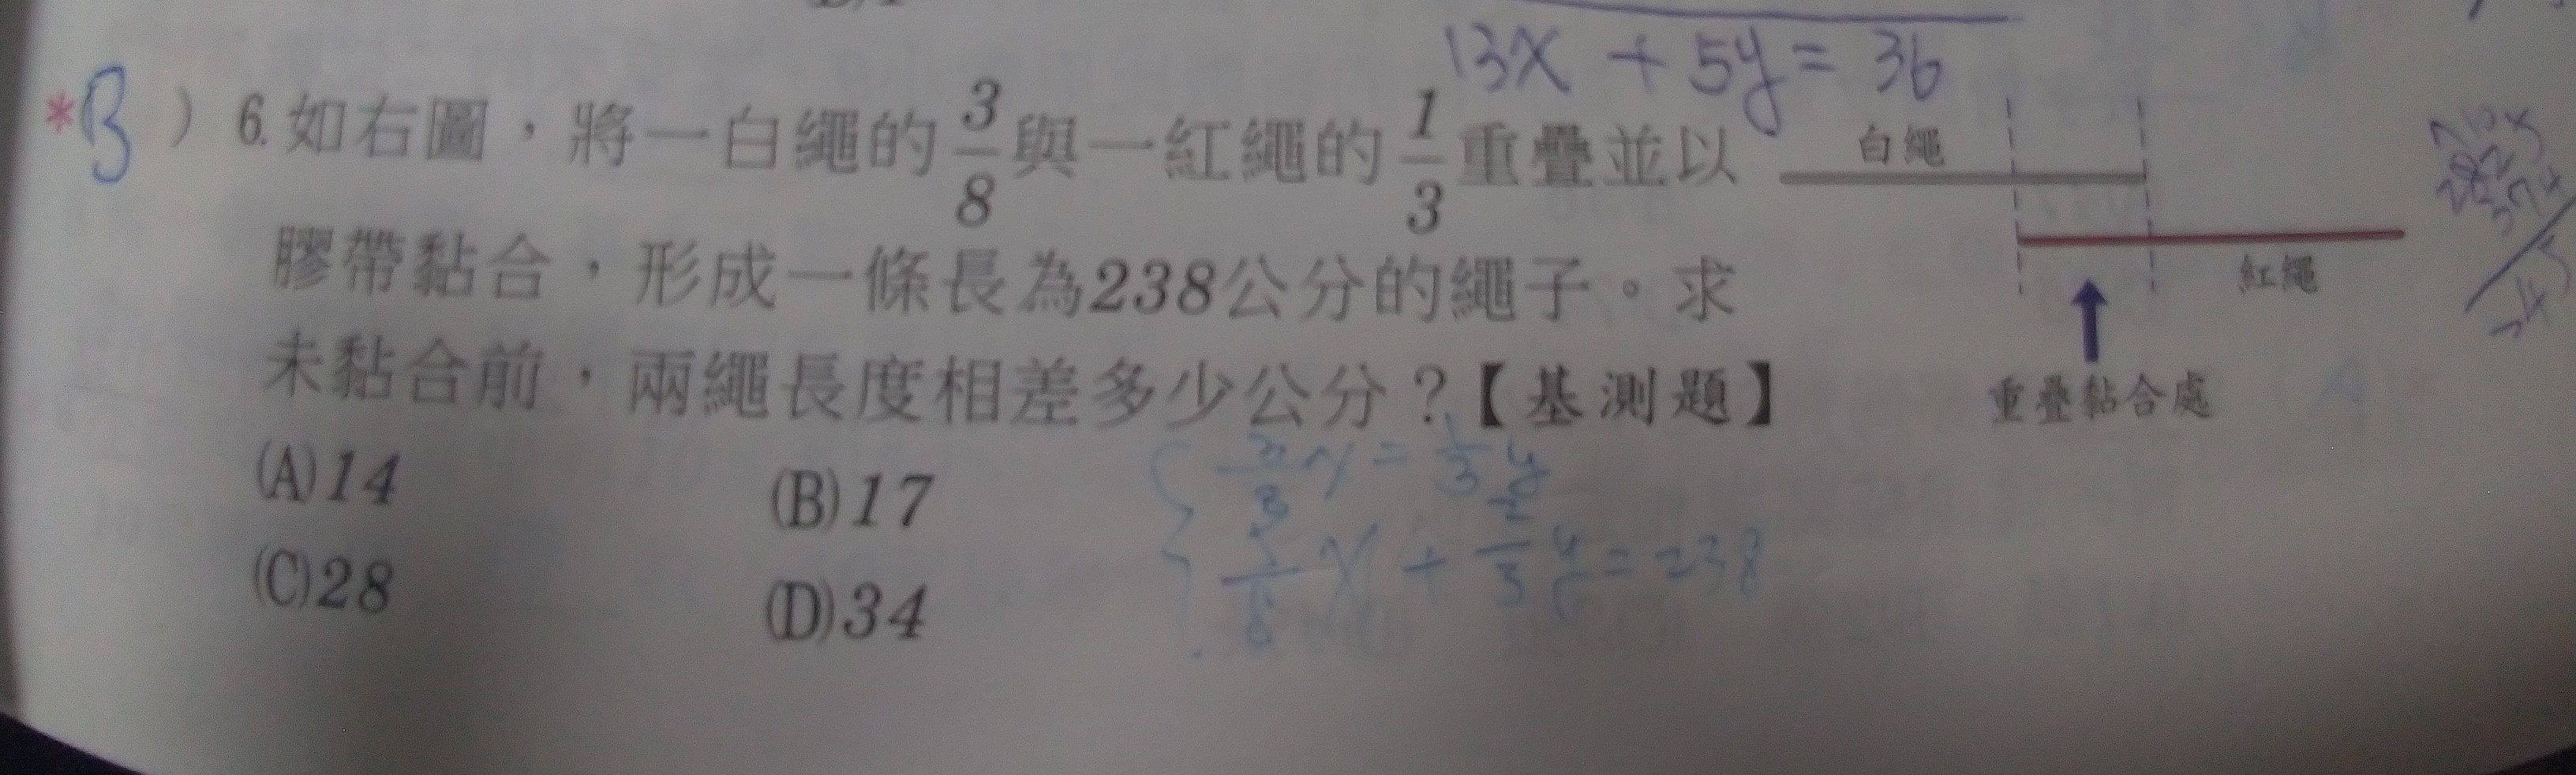 13x + 5y = 36
*B ) 6. 如右圖，將一白繩的3/8與一紅繩的1/3重疊並以
膠帶黏合，形成一條長為238公分的繩子。求
未黏合前，兩繩長度相差多少公分？【基測題】
(A)14 (B)17
(C)28 (D)34
白繩
紅繩
重疊黏合處
3/8 x = 1/3 y
5/8 x + 2/3 y = 238